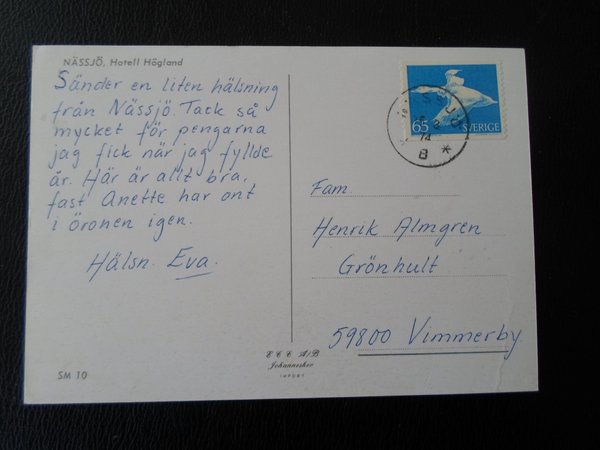 NÄSSJÖ, Hotell Högland
Sänder en liten hälsning
från Nässjö. Tack så
mycket för pengarna
jag fick när jag fyllde
år. Här är allt bra,
fast Anette har ont
i öronen igen.
Hälsn. Eva.
SM 10
ECC A/B
Johanneshov
IMPORT
65 SVERIGE
74
B *
Fam.
Henrik Almgren
Grönhult
59800 Vimmerby